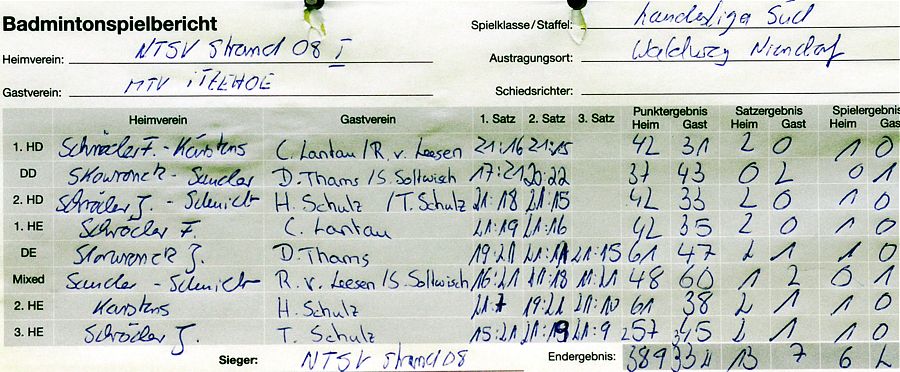 Badmintonspielbericht
Spielklasse/Staffel: Landesliga Süd
Heimverein: NTSV Strand 08 I
Austragungsort: Waldweg Niendorf
Gastverein: MTV ITZEHOE
Schiedsrichter:
Heimverein Gastverein 1. Satz 2. Satz 3. Satz Punktergebnis Heim Gast Satzergebnis Heim Gast Spielergebnis Heim Gast
1. HD Schröder F. - Karstens C. Lantau / R. v. Leesen 21:16 21:15 42 31 2 0 1 0
DD Skowronek - Sander D. Thams / S. Sollwisch 17:21 20:22 37 43 0 2 0 1
2. HD Schröder J. - Schmidt H. Schulz / T. Schulz 21:18 21:15 42 33 2 0 1 0
1. HE Schröder F. C. Lantau 21:19 21:16 42 35 2 0 1 0
DE Skowronek J. D. Thams 19:21 21:11 21:15 61 47 2 1 1 0
Mixed Sander - Schmidt R. v. Leesen / S. Sollwisch 16:21 21:18 11:21 48 60 1 2 0 1
2. HE Karstens H. Schulz 21:7 19:21 21:10 61 38 2 1 1 0
3. HE Schröder J. T. Schulz 15:21 21:9 57 45 2 1 1 0
Sieger: NTSV Strand 08 Endergebnis: 389 332 13 7 6 2